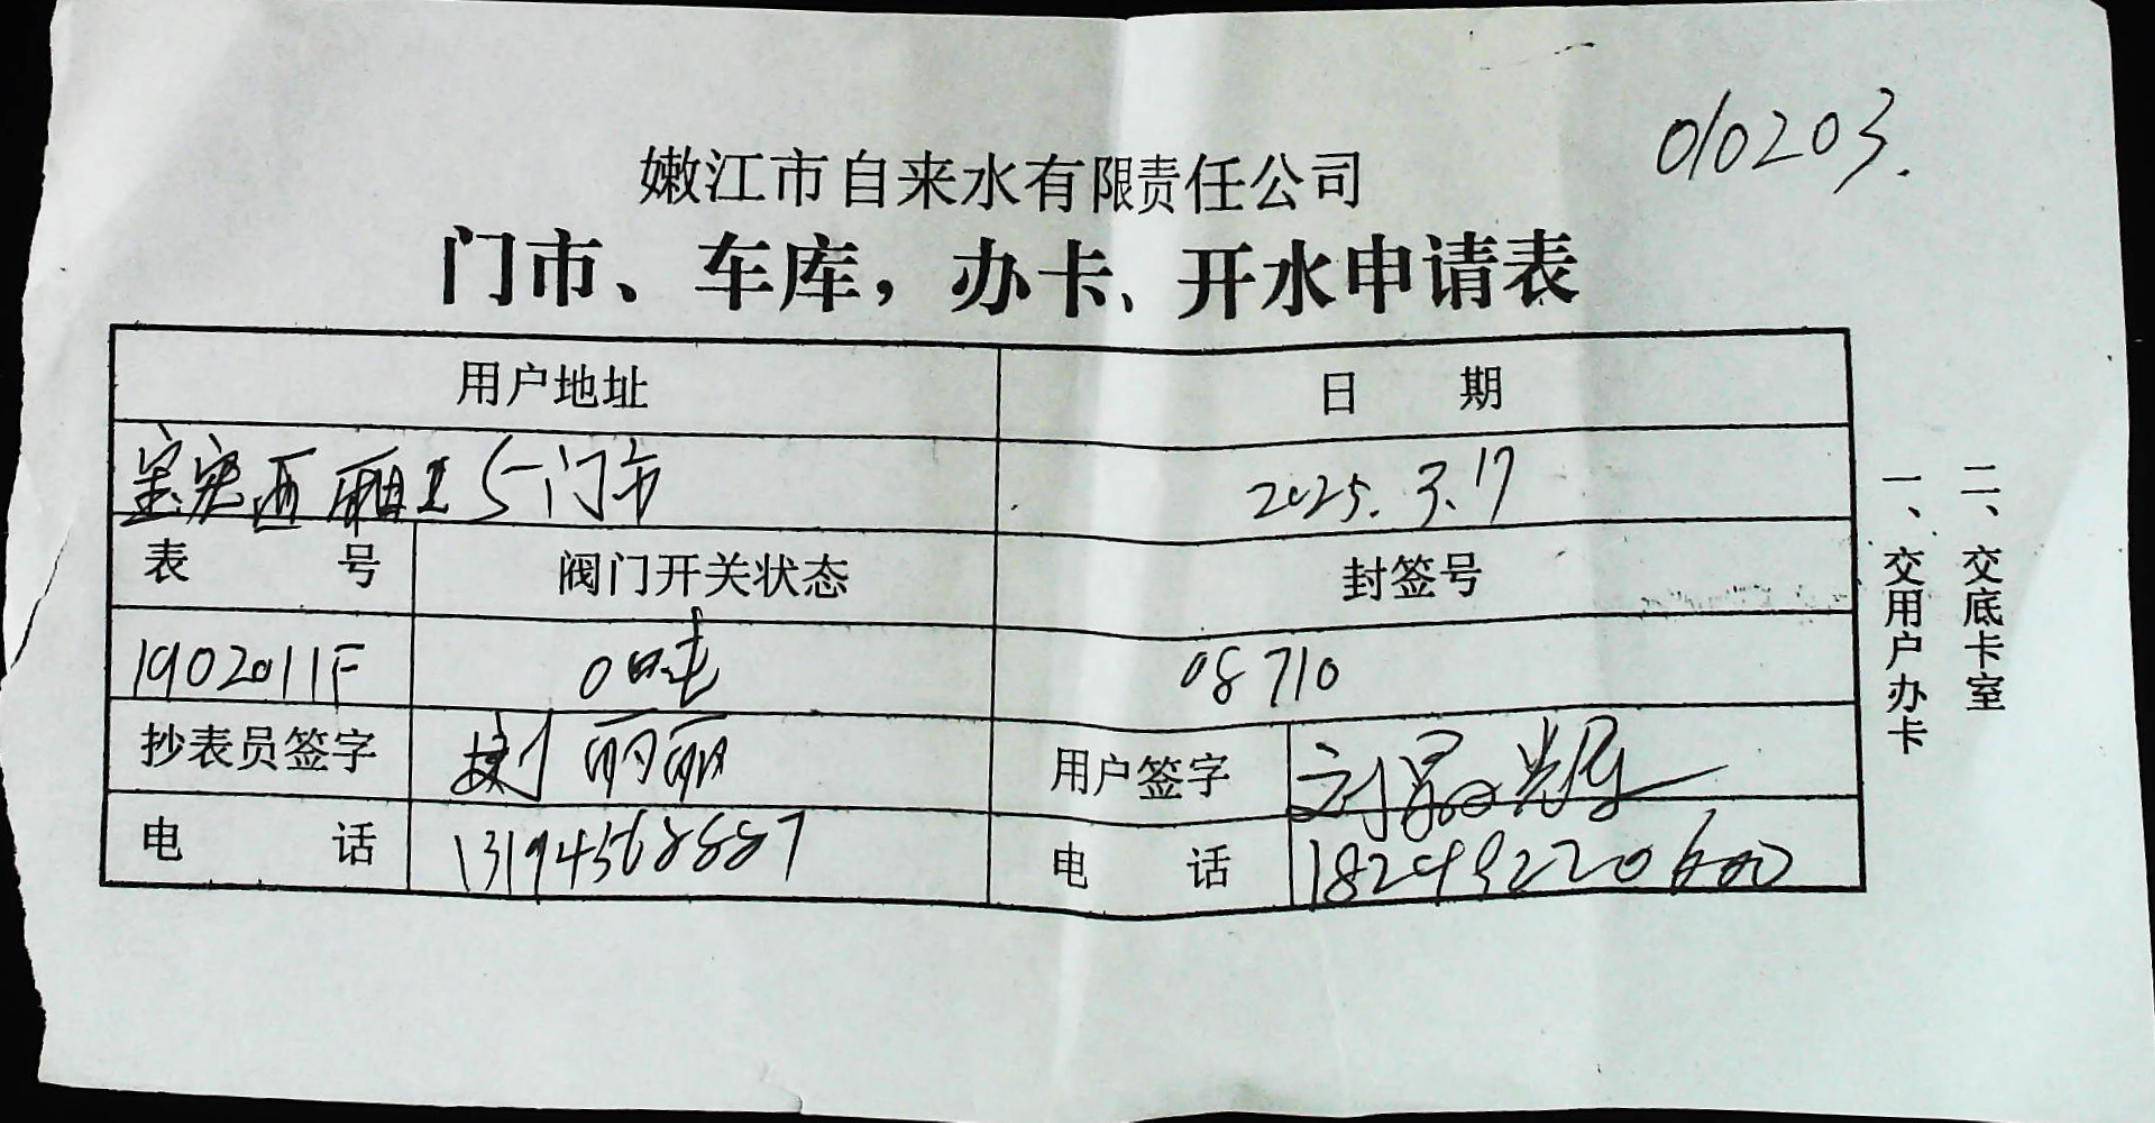 010203.
嫩江市自来水有限责任公司
门市、车库，办卡、开水申请表
用户地址 日期
宝宏西厢 5-门市 2025.3.17
表号 阀门开关状态 封签号
1902011F 0吨走 08710
抄表员签字 刘丽丽 用户签字 刘晶辉
电话 13194568887 电话
一、交用户办卡
二、交底卡室